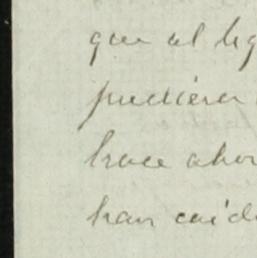 que el lig
pudiera
hace ahor
han caíd